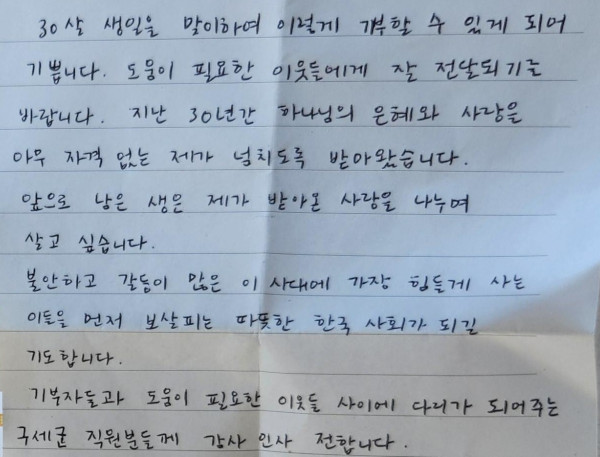 30살 생일을 맞이하여 이렇게 기부할 수 있게 되어
기쁩니다. 도움이 필요한 이웃들에게 잘 전달되기를
바랍니다. 지난 30년간 하나님의 은혜와 사랑을
아무 자격 없는 제가 넘치도록 받아왔습니다.
앞으로 남은 생은 제가 받아온 사랑을 나누며
살고 싶습니다.
불안하고 갈등이 많은 이 시대에 가장 힘들게 사는
이들을 먼저 보살피는 따뜻한 한국 사회가 되길
기도합니다.
기부자들과 도움이 필요한 이웃들 사이에 다리가 되어주는
구세군 직원분들께 감사 인사 전합니다.